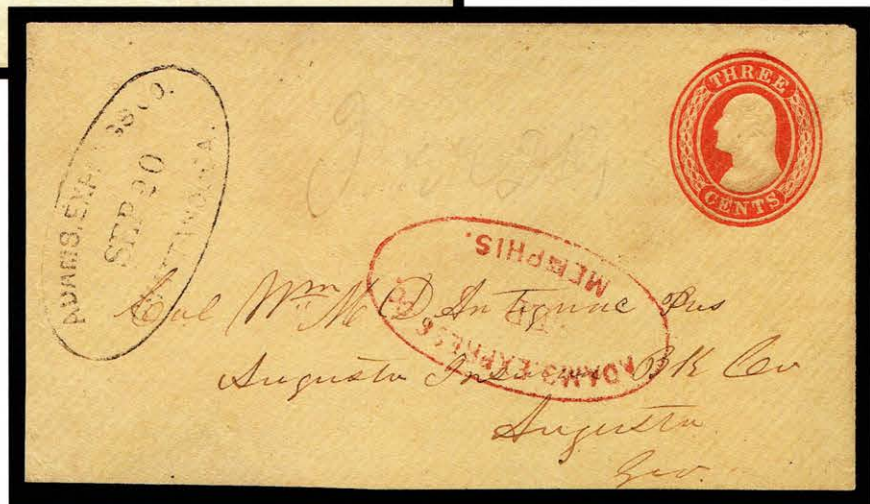 ADAMS. EXPRESS CO.
SEP 20
CHATTANOOGA.
THREE
CENTS
ADAMS. EXPRESS CO.
MEMPHIS.
Col Wm M D'Antignac Pres
Augusta Insur BK Co
Augusta
Geo.